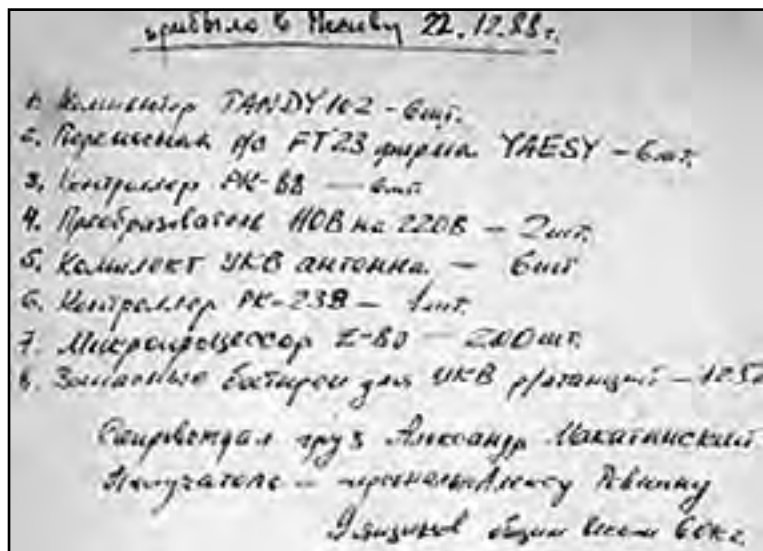 прибыло в Москву 22.12.88г.
1. Компьютер TANDY 102 - 6шт.
2. Переносная р/с FT23 фирма YAESY - 6шт.
3. Контроллер PK-88 — 6шт
4. Преобразователь 110В на 220В — 2шт.
5. Комплект УКВ антенна — 6шт
6. Контроллер PK-232 — 1шт.
7. Микропроцессор Z-80 — 200шт.
8. Запасные батареи для УКВ р/станций —
Сопровождал груз Александр
Получатель — персонально Алексу
9 ящиков общим весом 60кг.